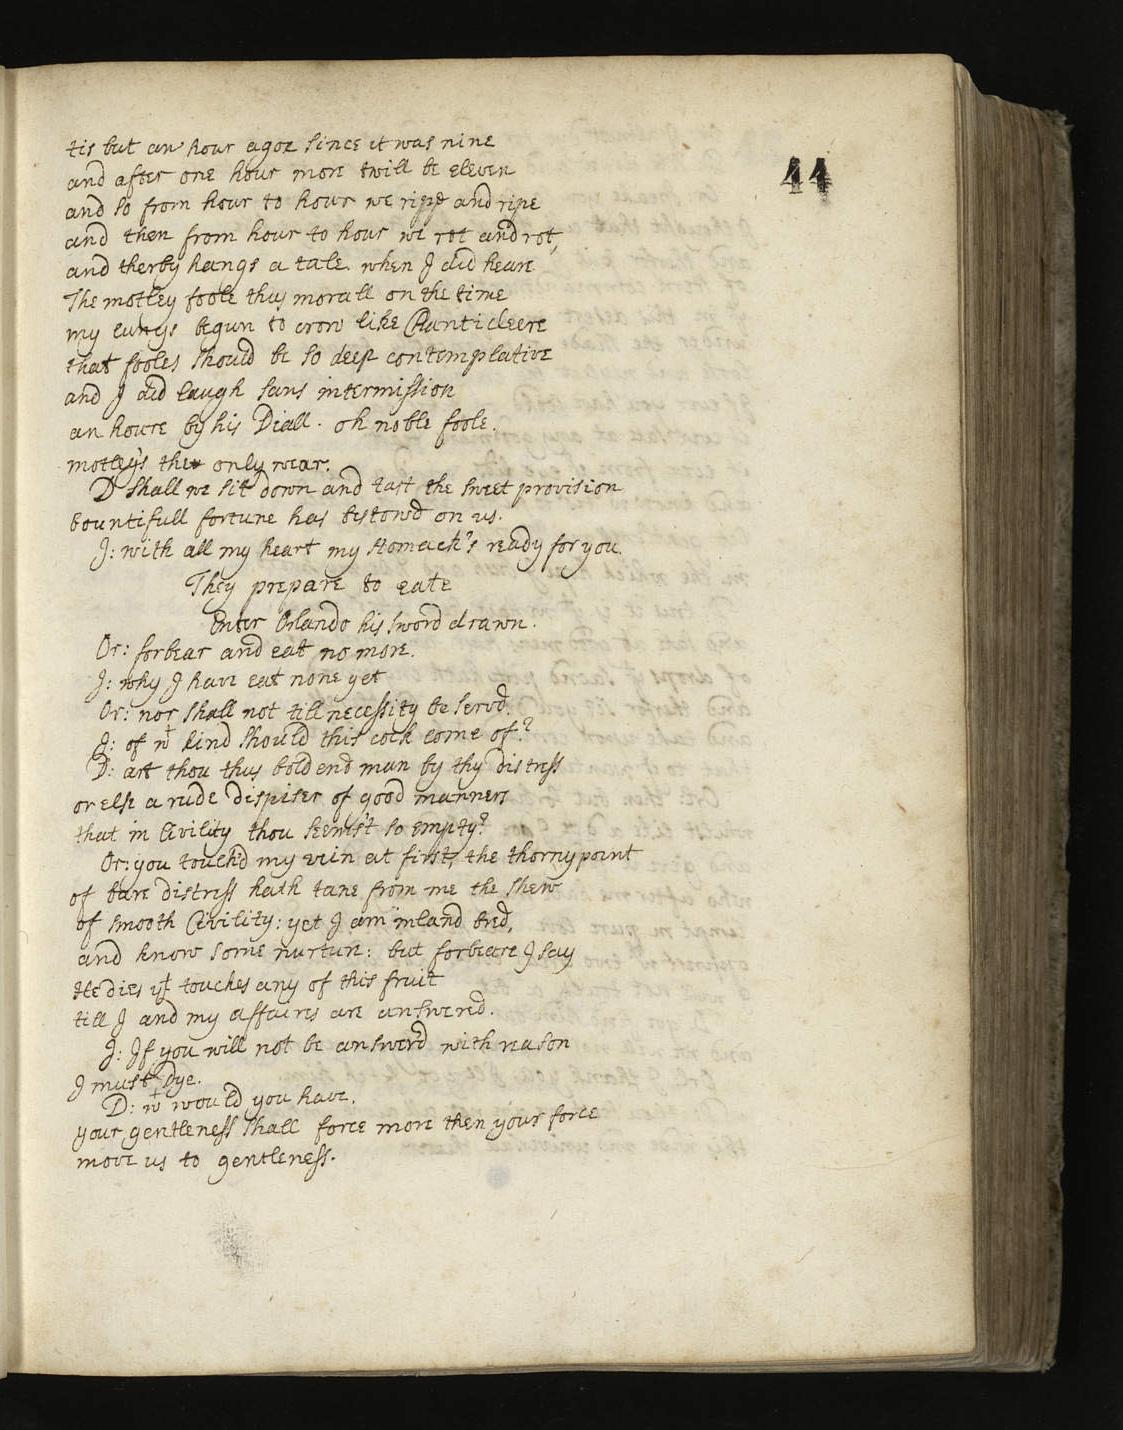 44
tis but an hour agoe since it was nine
and after one hour more twill be eleven
and so from hour to hour we ripe and ripe
and then from hour to hour we rot and rot,
and therby hangs a tale. when I did heare
The motley foole thus morall on the time
my lungs begun to crow like Chanticleere
that fooles should be so deep contemplative
and I did laugh sans intermission
an houre by his Diall. oh noble foole.
motley's the only wear.
D shall we sit down and tast the sweet provision
bountifull fortune has bestowd on us.
J: with all my heart my stomack's ready for you.
They prepare to eate
Enter Orlando his sword drawn.
Or: forbear and eat no more.
J: why I have eat none yet
Or: nor shall not till necessity be servd.
J: of wt kind should this cock come of?
D: art thou thus boldend man by thy distress
or else a rude dispiser of good manners
that in Civility thou seems't so empty?
Or: you touchd my vein at first, the thorny point
of bare distress hath tane from me the shew
of smooth Civility: yet I am inland bred,
and know some nurture: but forbeare I say
He dies yt touches any of this fruit
till I and my affaires are answered.
J: If you will not be answerd with reason
I must dye.
D: wt would you have.
your gentleness shall force more then your force
move us to gentleness.